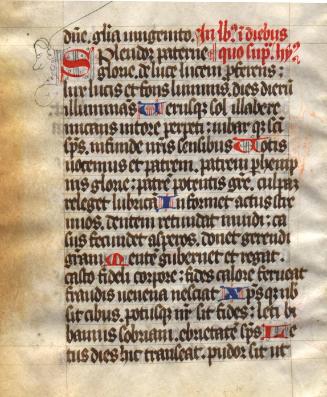 dūe. glīa unigenito. In lb'. ī diebus
Splendor paterne quo sup'. hy'.
glorie. de luce lucem pferens:
lux lucis et fons luminis. dies dierū
illuminās Uerusqʒ sol illabere
micans nitore perpeti: iubar qʒ sc̄i
sp̄s. infunde nr̄is sensibus Uotis
uocemus et patrem. patrem phenn
nis glorie: patrē potentis gr̄e. culpaʒ
releget lubricā Informet actus stre
nuos. dentem retundat inuidi: ca
sus secundet asperos. donet gerendi
gram Mentē gubernet et regat.
casto fideli corpore: fides calore ferueat
fraudis uenena nesciat Xp̄sqʒ nb̄
sit cibus. potusqʒ nr̄ sit fides: leti bi
bamus sobriam. ebrietatē sp̄s Le
tus dies hic transeat. pudor sit ut